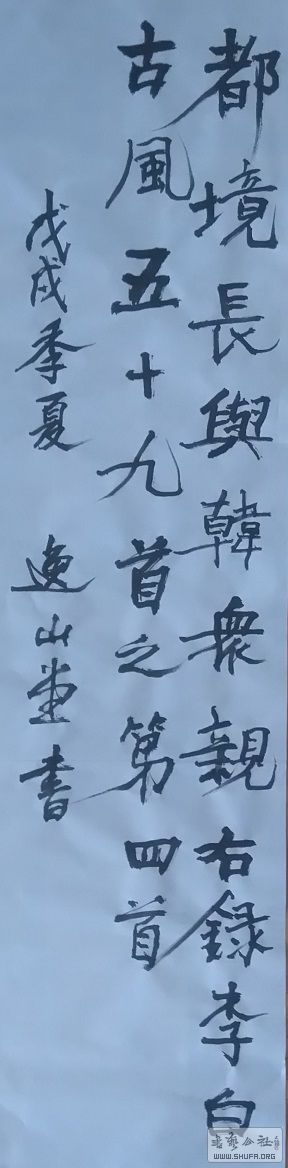 都境長與韓衆親右録李白
古風五十九首之第四首
戊戌季夏 逸山堂書
书艺公社
WWW.SHUFA.ORG